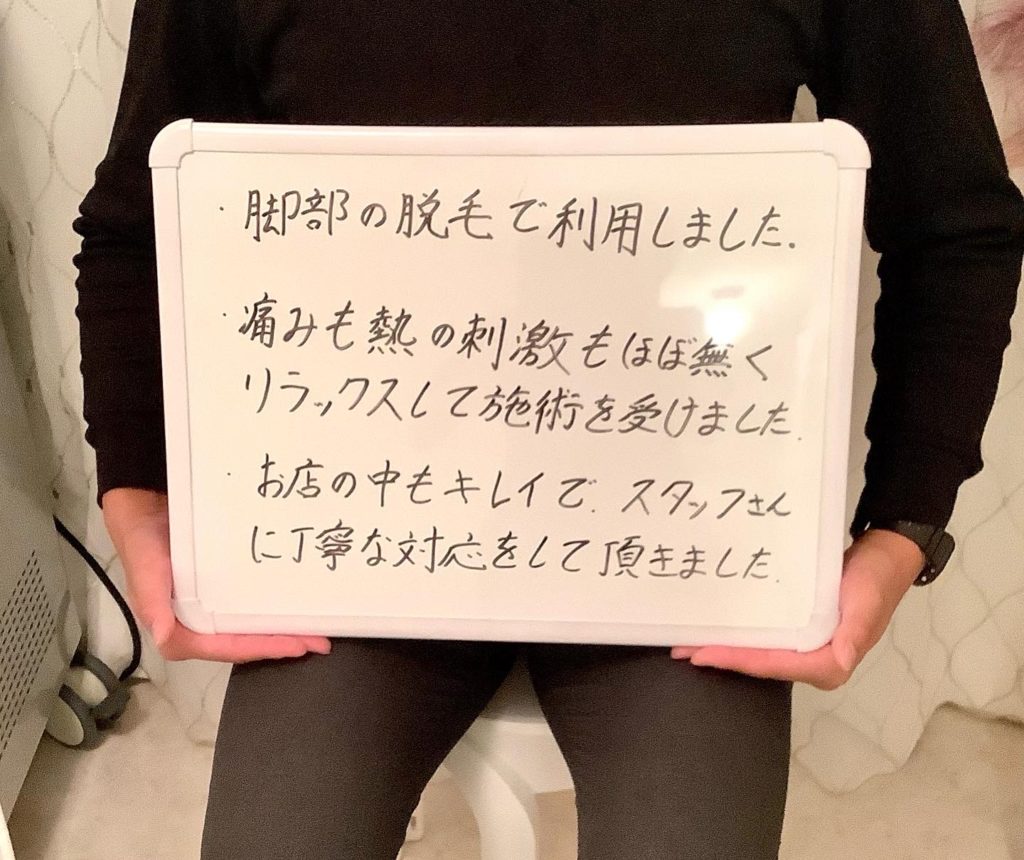 ・脚部の脱毛で利用しました.
・痛みも熱の刺激もほぼ無く
リラックスして施術を受けました.
・お店の中もキレイで.スタッフさん
に丁寧な対応をして頂きました.